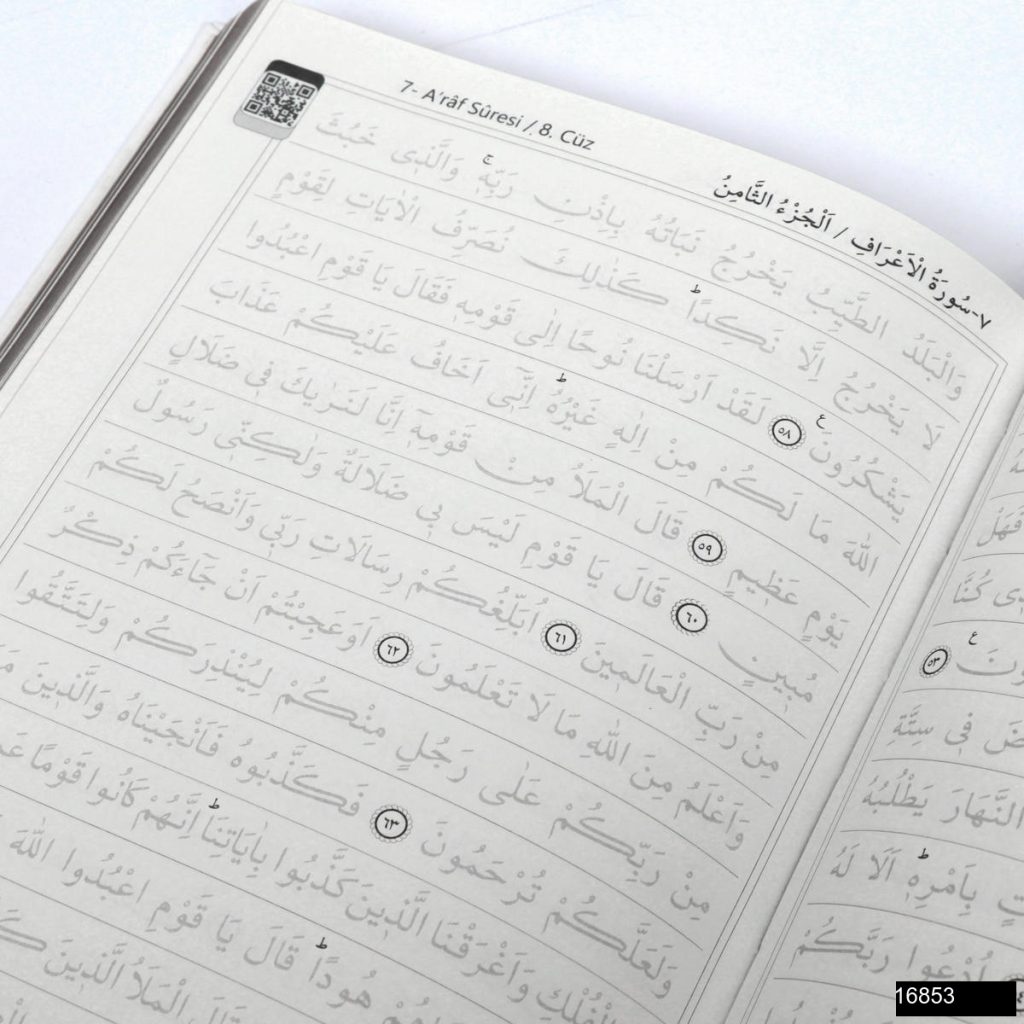 7- A'râf Sûresi / 8. Cüz
٧-سُورَةُ الْاَعْرَافِ / اَلْجُزْءُ الثَّامِنُ
وَالْبَلَدُ الطَّيِّبُ يَخْرُجُ نَبَاتُهُ بِاِذْنِ رَبِّه۪ۚ وَالَّذ۪ي خَبُثَ
لَا يَخْرُجُ اِلَّا نَكِدًاۜ كَذٰلِكَ نُصَرِّفُ الْاٰيَاتِ لِقَوْمٍ
يَشْكُرُونَ۟ ﴿٥٨﴾ لَقَدْ اَرْسَلْنَا نُوحًا اِلٰى قَوْمِه۪ فَقَالَ يَا قَوْمِ اعْبُدُوا
اللّٰهَ مَا لَكُمْ مِنْ اِلٰهٍ غَيْرُهُۜ اِنّ۪ٓي اَخَافُ عَلَيْكُمْ عَذَابَ
يَوْمٍ عَظ۪يمٍ ﴿٥٩﴾ قَالَ الْمَلَاُ مِنْ قَوْمِه۪ٓ اِنَّا لَنَرٰيكَ ف۪ي ضَلَالٍ
مُب۪ينٍ ﴿٦٠﴾ قَالَ يَا قَوْمِ لَيْسَ ب۪ي ضَلَالَةٌ وَلٰكِنّ۪ي رَسُولٌ
مِنْ رَبِّ الْعَالَم۪ينَ ﴿٦١﴾ اُبَلِّغُكُمْ رِسَالَاتِ رَبّ۪ي وَاَنْصَحُ لَكُمْ
وَاَعْلَمُ مِنَ اللّٰهِ مَا لَا تَعْلَمُونَ ﴿٦٢﴾ اَوَعَجِبْتُمْ اَنْ جَٓاءَكُمْ ذِكْرٌ
مِنْ رَبِّكُمْ عَلٰى رَجُلٍ مِنْكُمْ لِيُنْذِرَكُمْ وَلِتَتَّقُوا
وَلَعَلَّكُمْ تُرْحَمُونَ ﴿٦٣﴾ فَكَذَّبُوهُ فَاَنْجَيْنَاهُ وَالَّذ۪ينَ
الْفُلْكِ وَاَغْرَقْنَا الَّذ۪ينَ كَذَّبُوا بِاٰيَاتِنَاۜ اِنَّهُمْ كَانُوا قَوْمًا
هُودًاۜ قَالَ يَا قَوْمِ اعْبُدُوا اللّٰهَ
قَالَ الْمَلَاُ الَّذ۪ينَ
فَهَلْ
كُنَّا
﴿٥٣﴾
ف۪ي سِتَّةِ
النَّهَارَ يَطْلُبُهُ
بِاَمْرِه۪ۜ اَلَا لَهُ
اُدْعُوا رَبَّكُمْ
16853